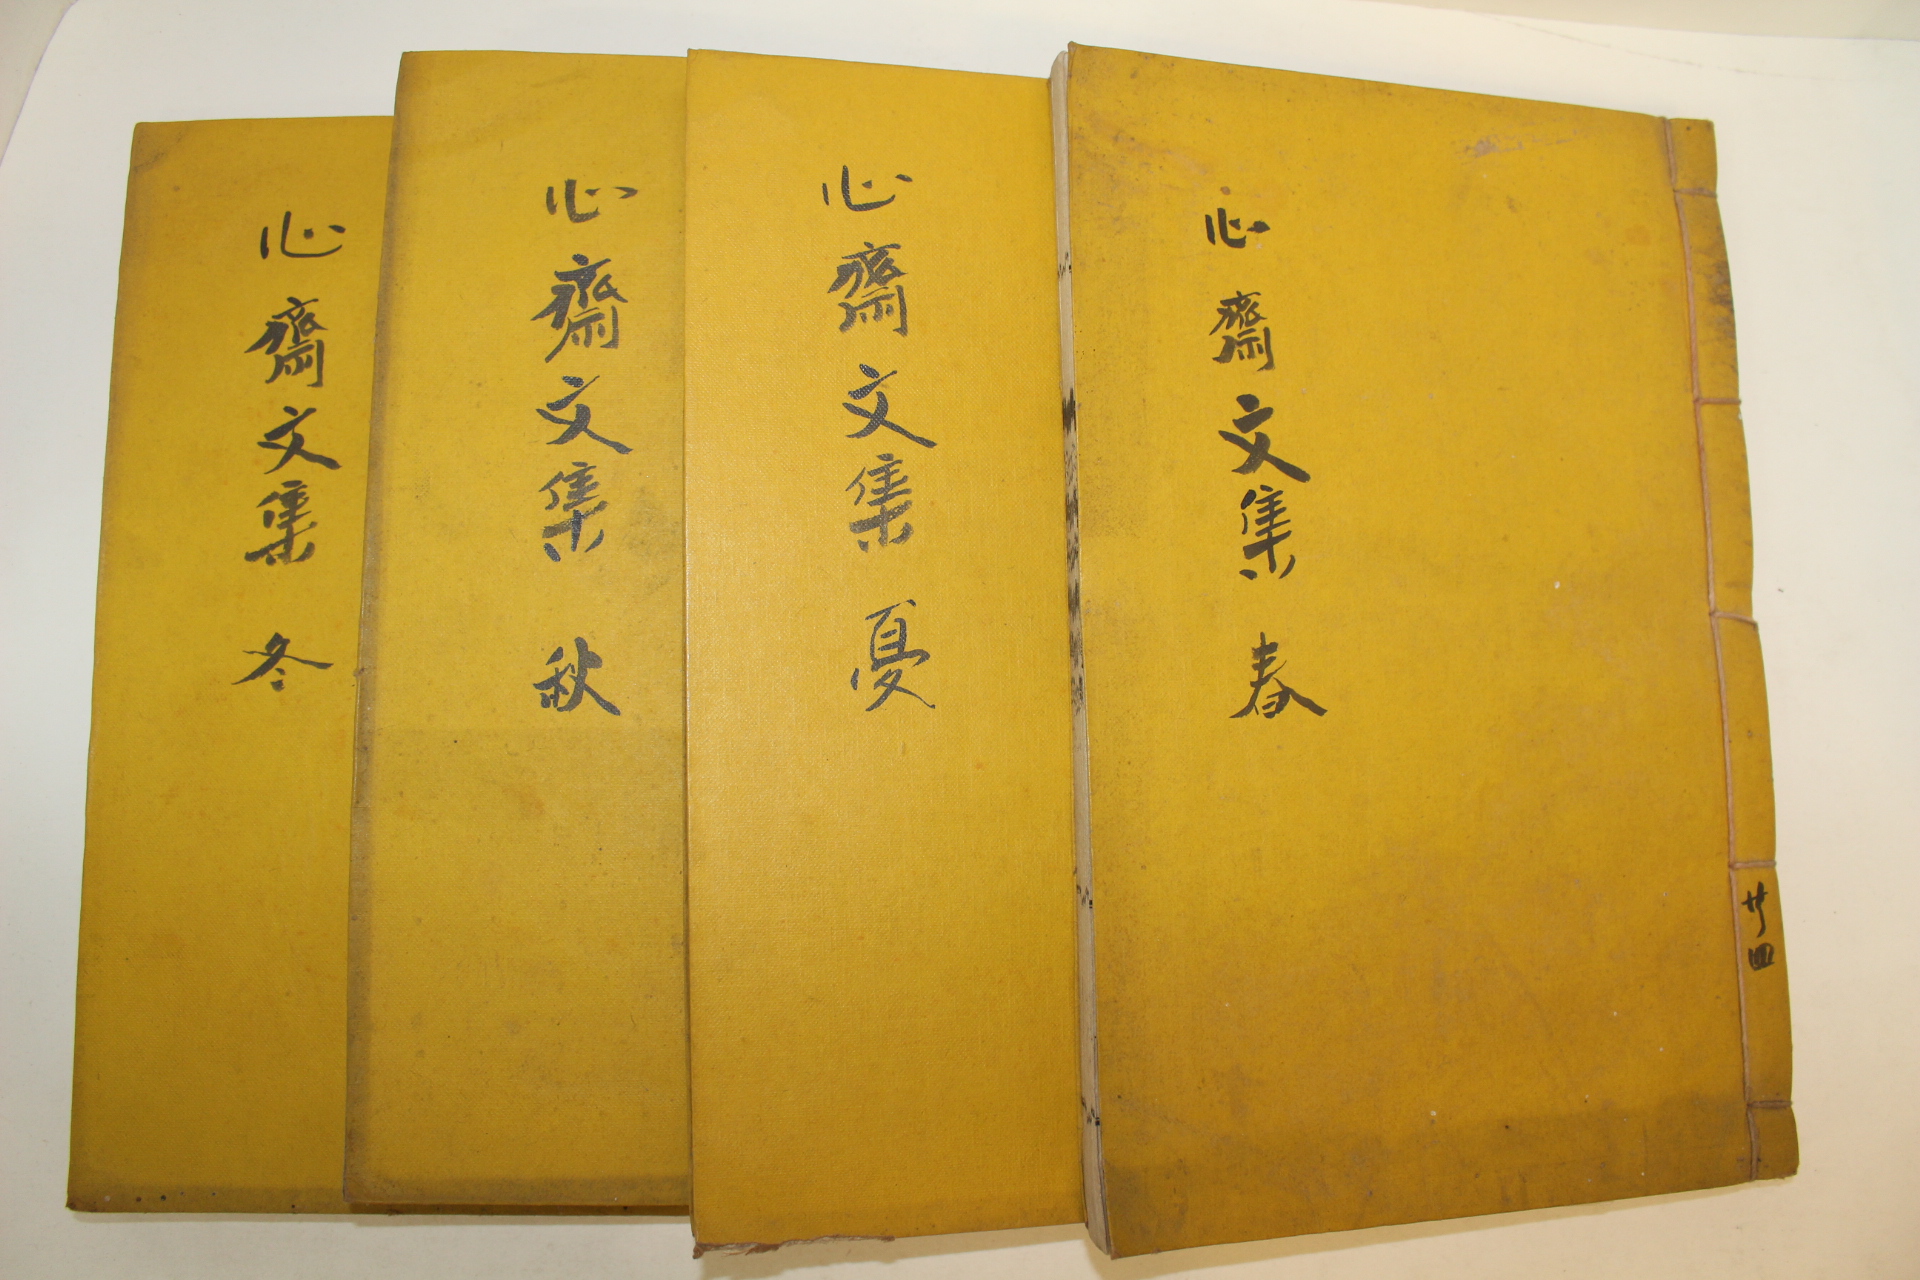 心齋文集 春
廿四
心齋文集 夏
心齋文集 秋
心齋文集 冬